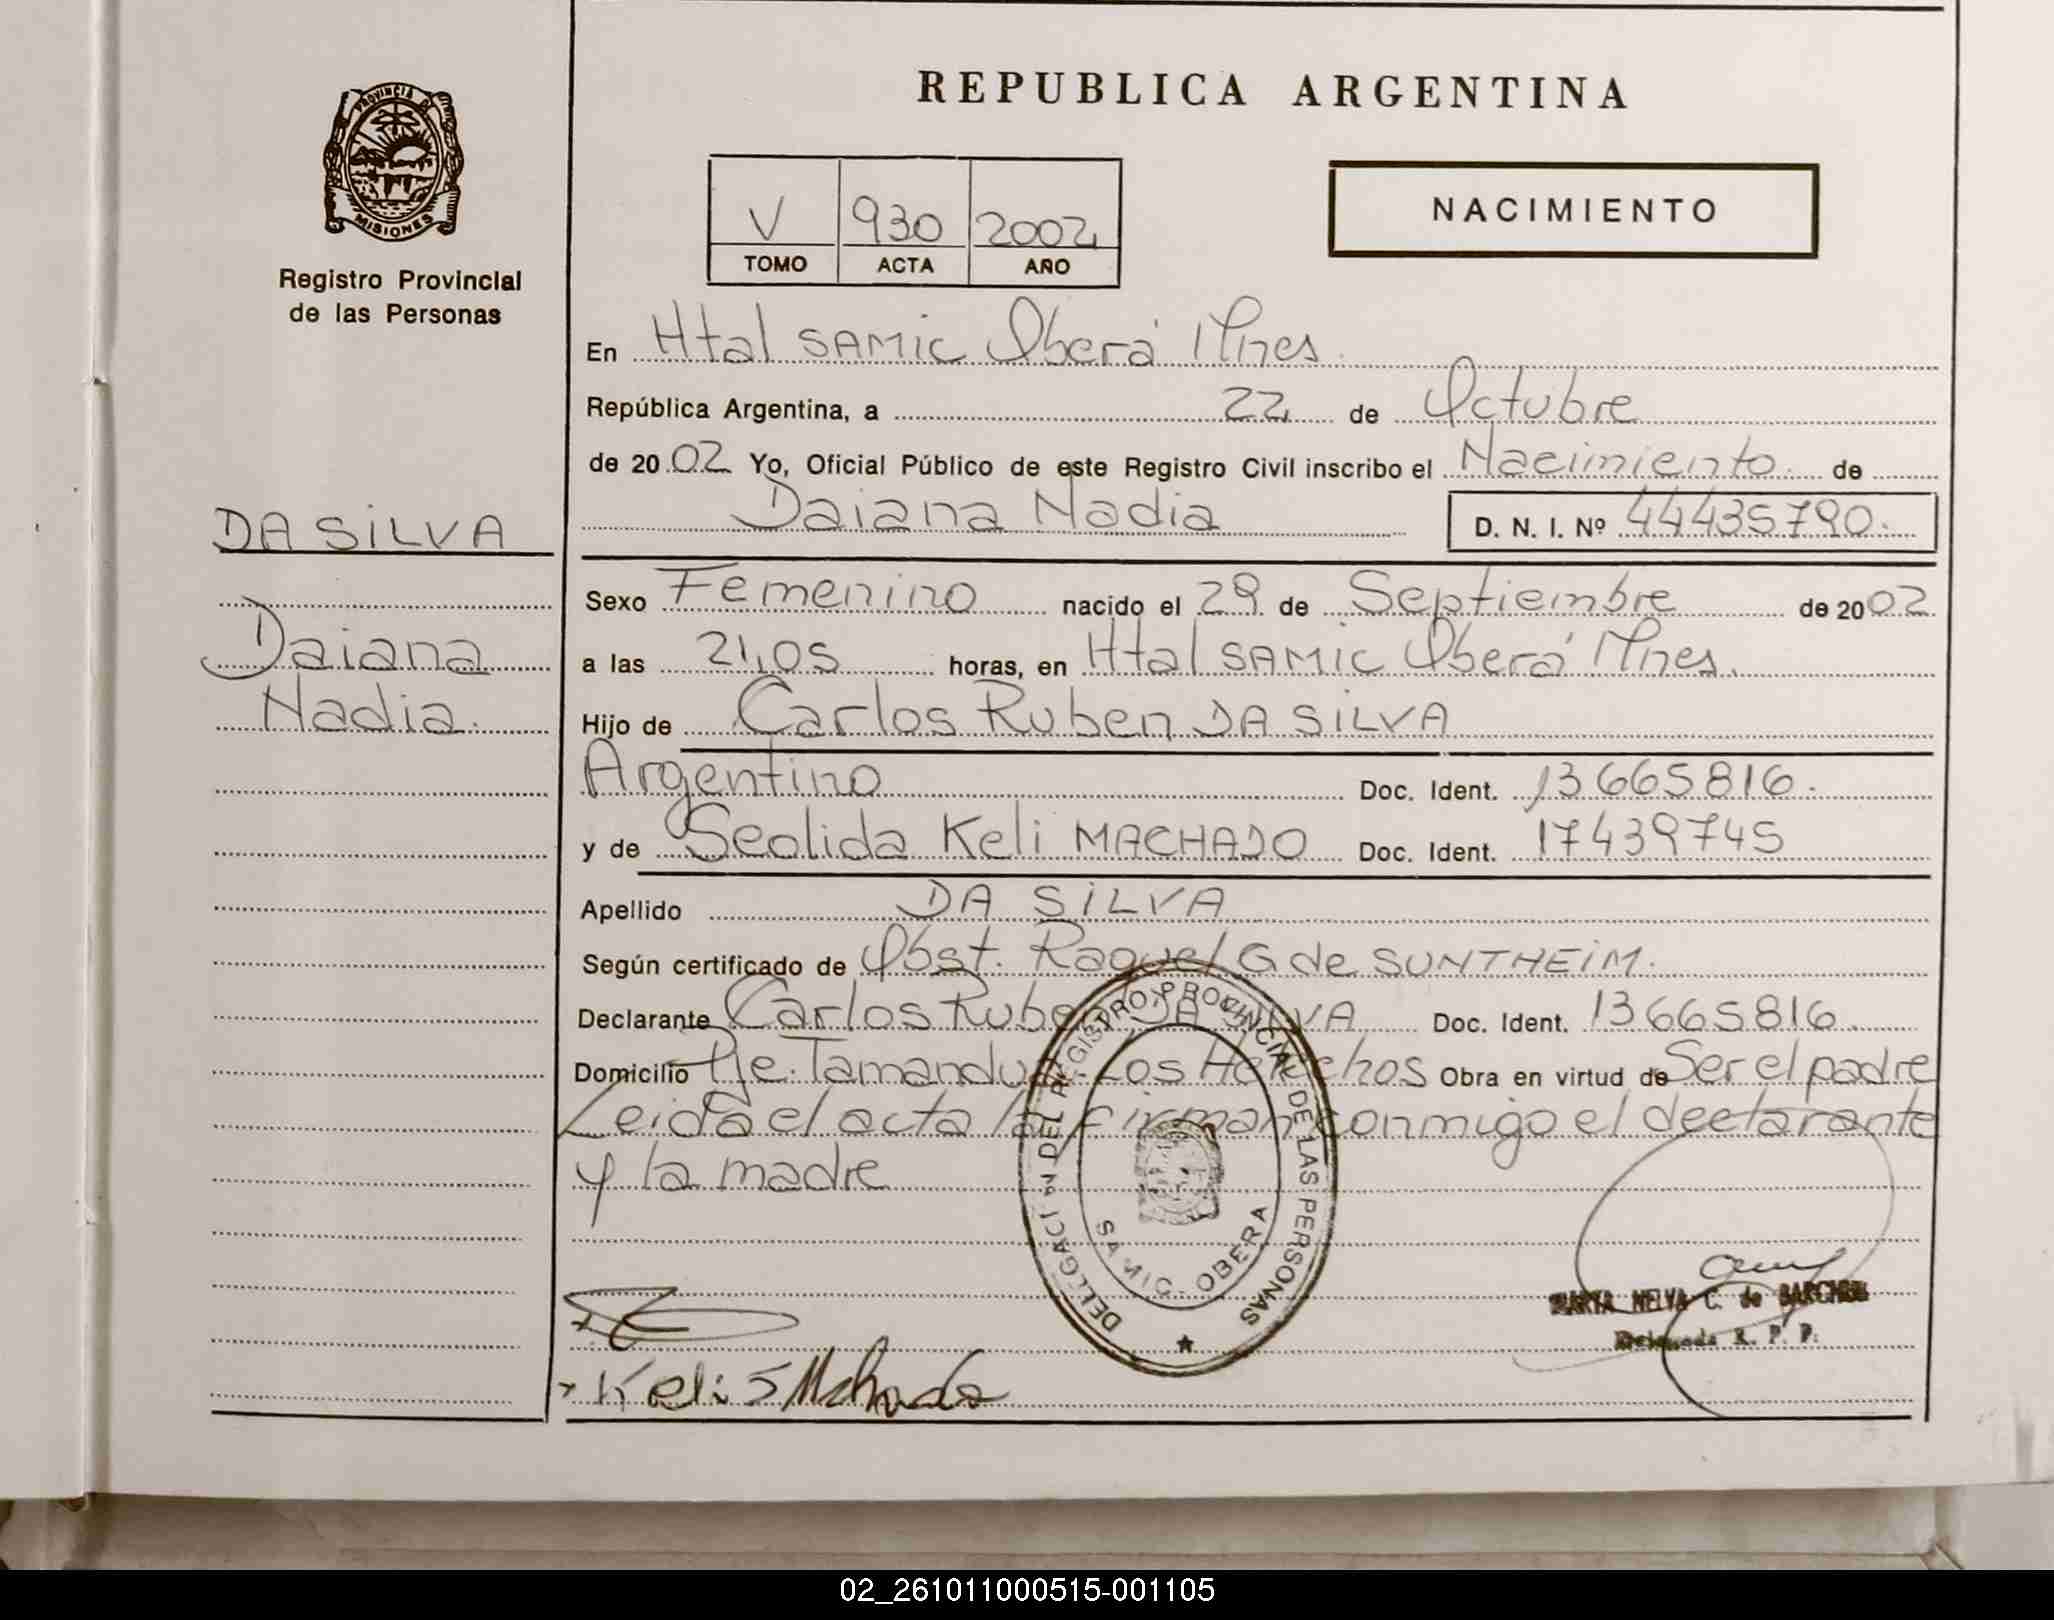 PROVINCIA D
MISIONES
Registro Provincial
de las Personas
DA SILVA
Daiana
Nadia.
REPUBLICA ARGENTINA
V 930 2002
TOMO ACTA AÑO
NACIMIENTO
En Htal SAMIC Oberá Mnes.
República Argentina, a 22 de Octubre
de 2002 Yo, Oficial Público de este Registro Civil inscribo el Nacimiento de
Daiana Nadia D. N. I. Nº 44435790.
Sexo Femenino nacido el 29 de Septiembre de 2002
a las 21,05 horas, en Htal SAMIC Oberá Mnes.
Hijo de Carlos Ruben DA SILVA
Argentino Doc. Ident. 13665816.
y de Seolida Keli MACHADO Doc. Ident. 17439745
Apellido DA SILVA
Según certificado de Obst. Raquel G de SUNTHEIM.
Declarante Carlos Ruben DA SILVA Doc. Ident. 13665816.
Domicilio Pje. Tamandua - Los Helechos Obra en virtud de Ser el padre
Leida el acta la firman conmigo el declarante
y la madre
DELEGACION DEL REGISTRO PROVINCIAL DE LAS PERSONAS
SAMIC - OBERA
Keli S Machado
NELVA C. de
Delegada R. P. P.
02_261011000515-001105